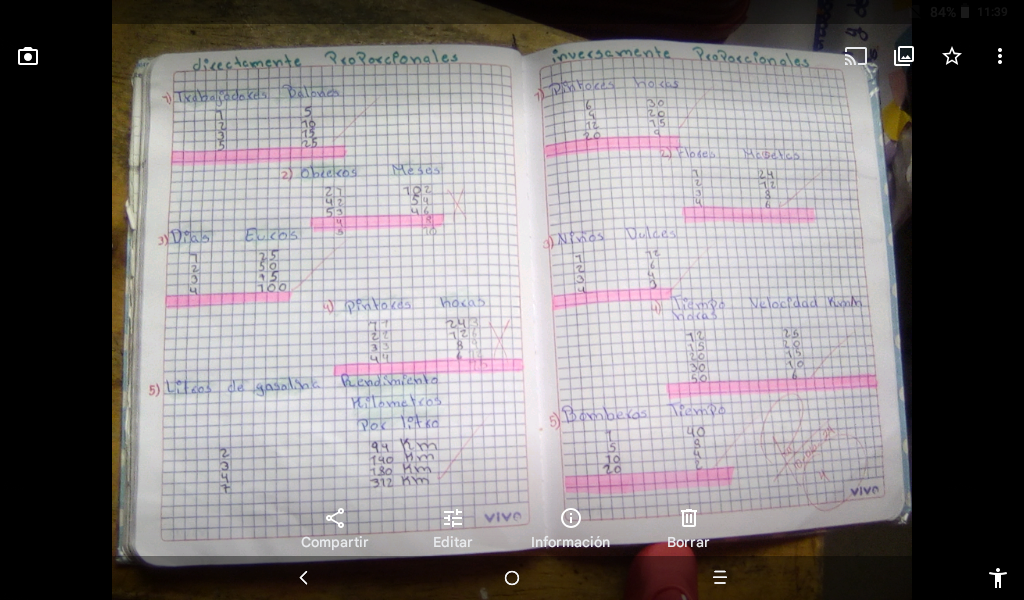 84% 11:39
directamente Proporcionales
1) Trabajadores Balones
1 5
2 10
3 15
5 25
2) Obreros Meses
21 102
42 54
53 46
3) Dias Euros
1 25
2 50
3
4 100
4) Pintores horas
11
22
33
44
5) Litros de gasolina Rendimiento
Kilometros
Por litro
2 94 Km
3 140 Km
4 180 Km
7 312 Km
vivo
inversamente Proporcionales
1) Pintores horas
6 30
20
12 15
20 9
2) Flores Macetas
1 24
2 12
3 8
4 6
3) Niños Dulces
1 12
2 6
3 4
4 3
4) Tiempo Velocidad Km/h
horas
12 25
15 20
20 15
30 10
50 6
5) Bomberos Tiempo
1 40
5 8
10 4
20 2
vivo
Compartir Editar Información Borrar